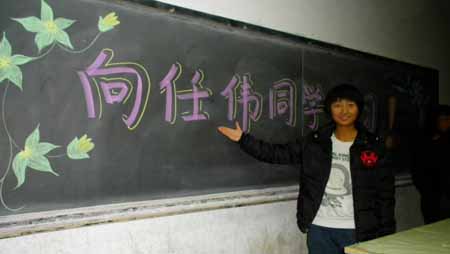 向任伟同学